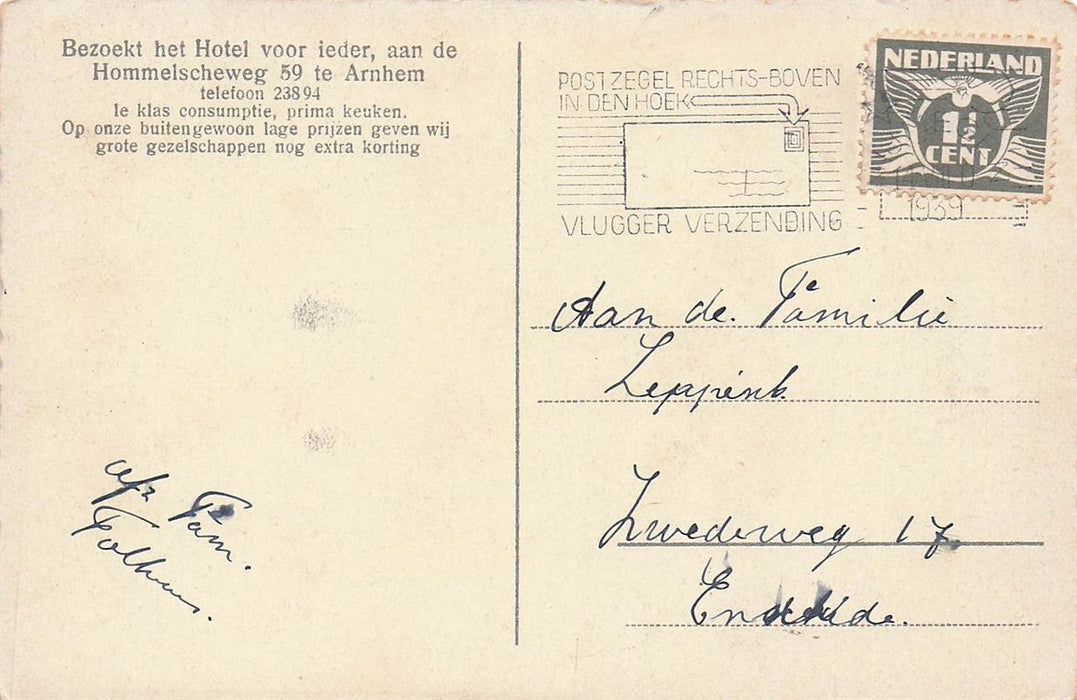 Bezoekt het Hotel voor ieder, aan de
Hommelscheweg 59 te Arnhem
telefoon 23894
1e klas consumptie, prima keuken.
Op onze buitengewoon lage prijzen geven wij
grote gezelschappen nog extra korting
POSTZEGEL RECHTS-BOVEN
IN DEN HOEK
VLUGGER VERZENDING
NEDERLAND
1½
CENT
1939
Aan de. Familie
Leppink
Zwedeweg 17.
Enschede.
afz Fam.